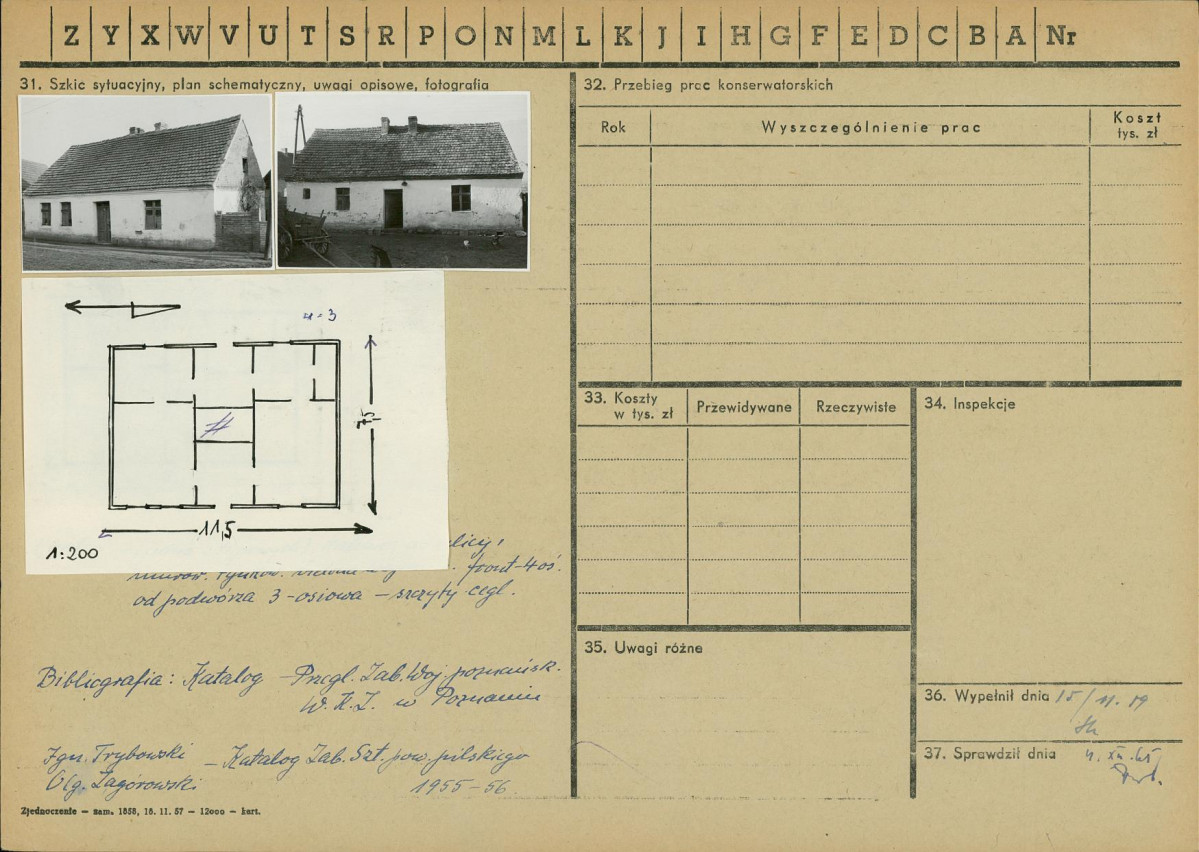 Z Y X W V U T S R P O N M L K J I H G F E D C B A Nr
31. Szkic sytuacyjny, plan schematyczny, uwagi opisowe, fotografia
7,5
11,5
1:200
front - 4 oś.
od podwórza 3 - osiowa - szczyty cegl.
Bibliografia: Katalog - Przegl. Zab. Woj. poznańsk.
W. K. Z. w Poznaniu
Ign. Trybowski
Olg. Zagórowski
- Katalog Zab. Szt. pow. pilskiego
1955-56
Zjednoczenie — zam. 1858, 16. 11. 57 — 12000 — kart.
32. Przebieg prac konserwatorskich
Rok
Wyszczególnienie prac
Koszt
tys. zł
33. Koszty
w tys. zł
Przewidywane
Rzeczywiste
34. Inspekcje
35. Uwagi różne
36. Wypełnił dnia 15/11. 59
37. Sprawdził dnia